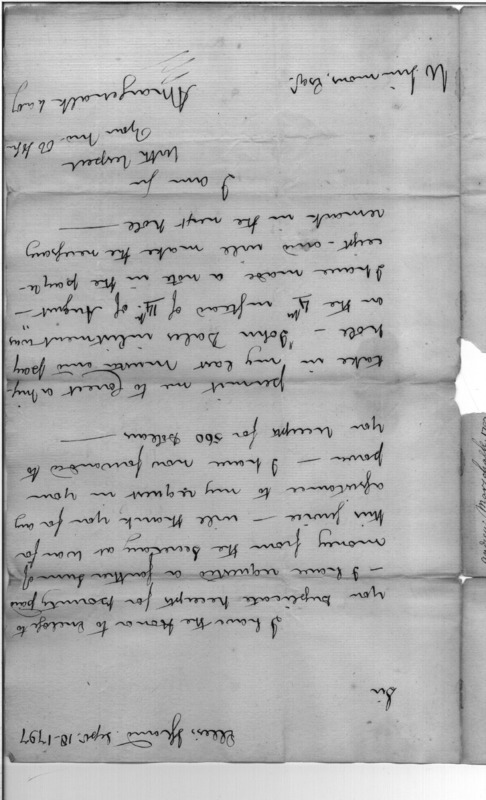 Ellis's Island Sept. 18-1797
Sir
I have the Honor to Enclose to
you Duplicate Receipts for Bounty paid
- I have requested a further sum of
money from the Secretary at War for
this service - will thank you for any
assistance to my request in your
power - I have now forwarded to
you receipts for 560 Dollars -
permit me to Correct a mis-
take in my last muster and pay
Role - "John Bales inlistment" was
on the 4th instead of 11th of August -
I have made a note in the pay Re-
ceipt - and will make the necessary
remark in the next Role -
I am Sir
With respect
Your Mo. Ob
W Simmons, Esqr.